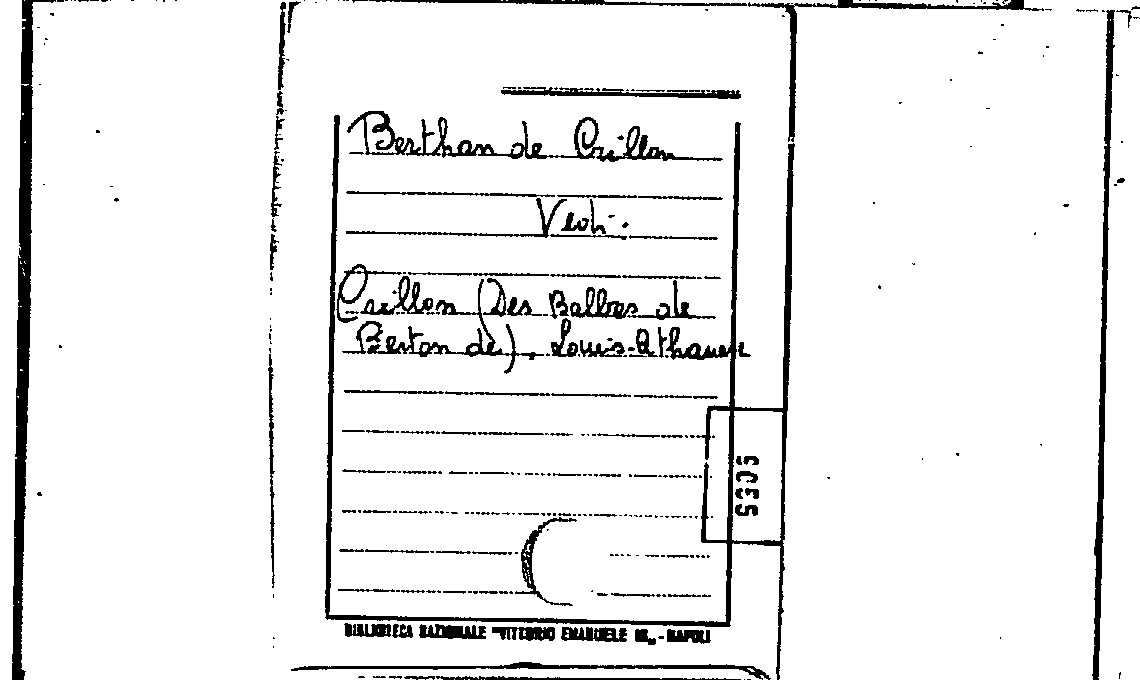 Berthan de Crillon
Vedi:
Crillon (Des Balbes de
Berton de), Louis-Athanase
5305
BIBLIOTECA NAZIONALE "VITTORIO EMANUELE III" - NAPOLI